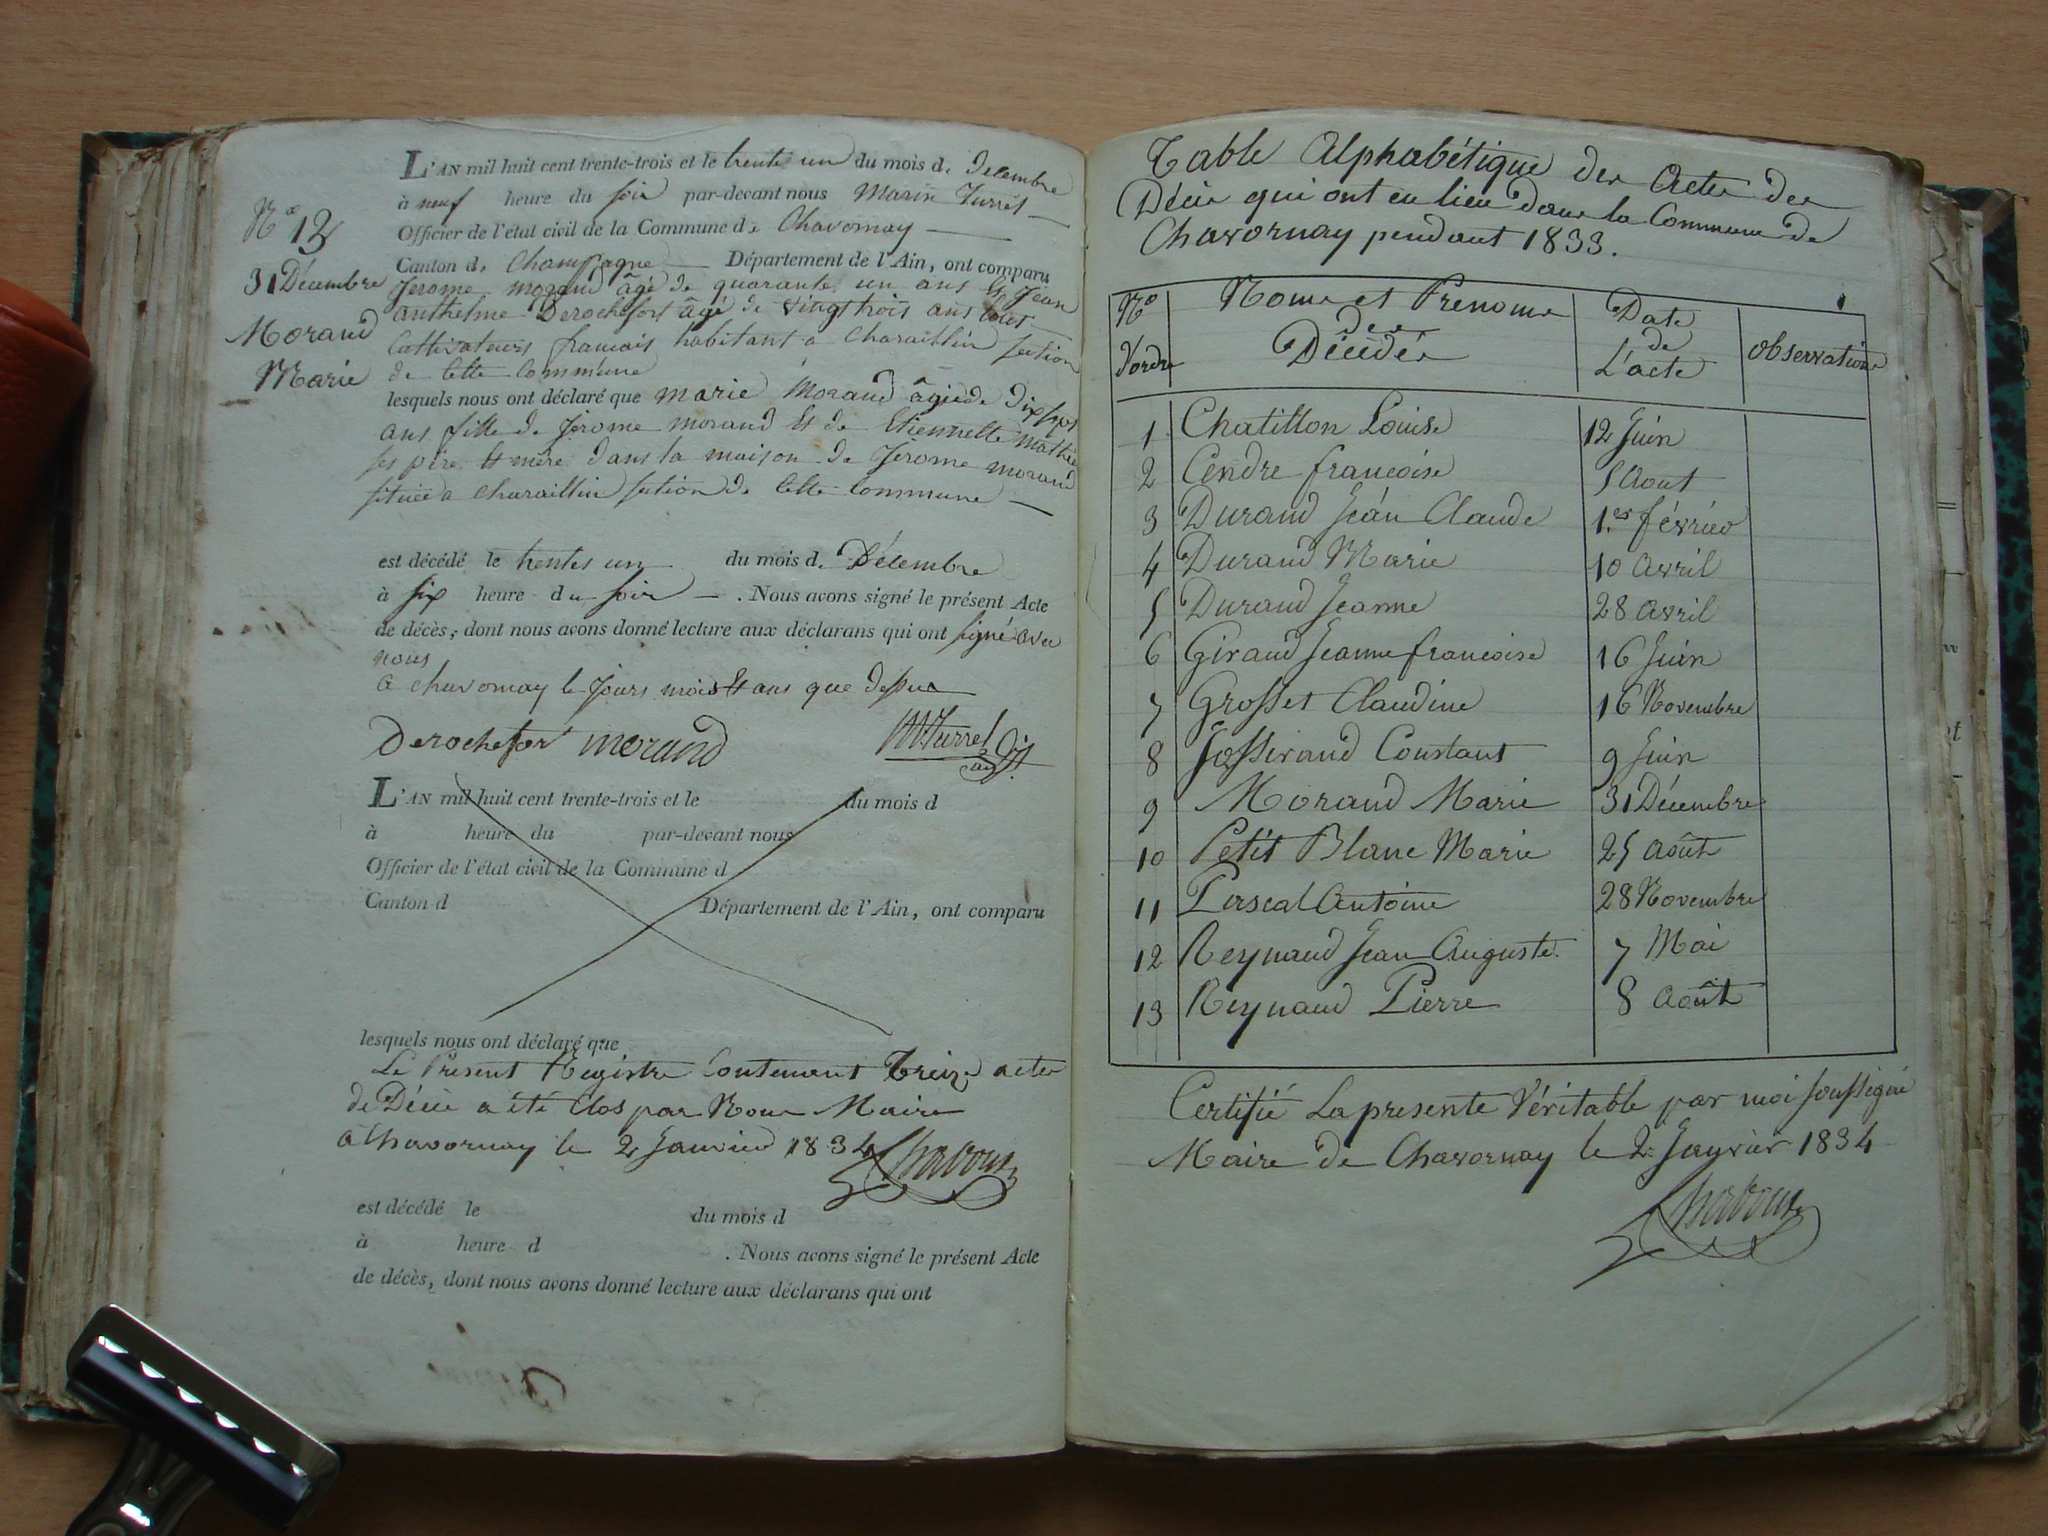 N.º 13
31 Décembre
Morand
Marie
L'AN mil huit cent trente-trois et le trente un du mois d. Décembre
à neuf heure du soir par-devant nous Marin Turrel
Officier de l'état civil de la Commune d. Chavornay
Canton d. Champagne Département de l'Ain, ont comparu
Jerome morand âgé de quarante un ans Et Jean
anthelme Derochefort âgé de vingt trois ans tous
Cultivateurs francais habitant a Charaillin section
de Cette Commune
lesquels nous ont déclaré que marie Morand âgiée de dix sept
ans fille de Jerome morand Et de Etiennette Mathieu
ses père Et mère dans la maison de Jerome morand
située a Charaillin section de Cette Commune
est décédé le trentes un du mois d. Décembre
à six heure du soir . Nous avons signé le présent Acte
de décès, dont nous avons donné lecture aux déclarans qui ont signé avec
nous
a chavornay le Jours mois Et ans que dessus
Derochefort morand M Turrel
adj.t
L'AN mil huit cent trente-trois et le du mois d
à heure du par-devant nous
Officier de l'état civil de la Commune d
Canton d Département de l'Ain, ont comparu
lesquels nous ont déclaré que
Le Présent Registre Contenent treize actes
de Décè a été Clos par Nous Maire
a Chavornay le 2 Janvier 1834
est décédé le du mois d
à heure d . Nous avons signé le présent Acte
de décès, dont nous avons donné lecture aux déclarans qui ont
Table Alphabétique des Actes de
Décès qui ont eu lieu dans la Commune de
Chavornay pendant 1833.
Nº d'ordre
Noms et Prénoms des Décédés
Date de L'acte
Observations
1 Chatillon Louise 12 Juin
2 Cendre francoise 5 Aout
3 Durand Jean Claude 1.er février
4 Durand Marie 10 avril
5 Durand Jeanne 28 avril
6 Giraud Jeanne francoise 16 Juin
7 Grosset Claudine 16 Novembre
8 Josserand Constant 9 Juin
9 Morand Marie 31 Décembre
10 Petit Blanc Marie 25 août
11 Pascal Antoine 28 Novembre
12 Reynaud Jean Auguste 7 Mai
13 Reynaud Pierre 8 août
Certifié La presente Véritable par moi soussigné
Maire de Chavornay le 2 Janvier 1834